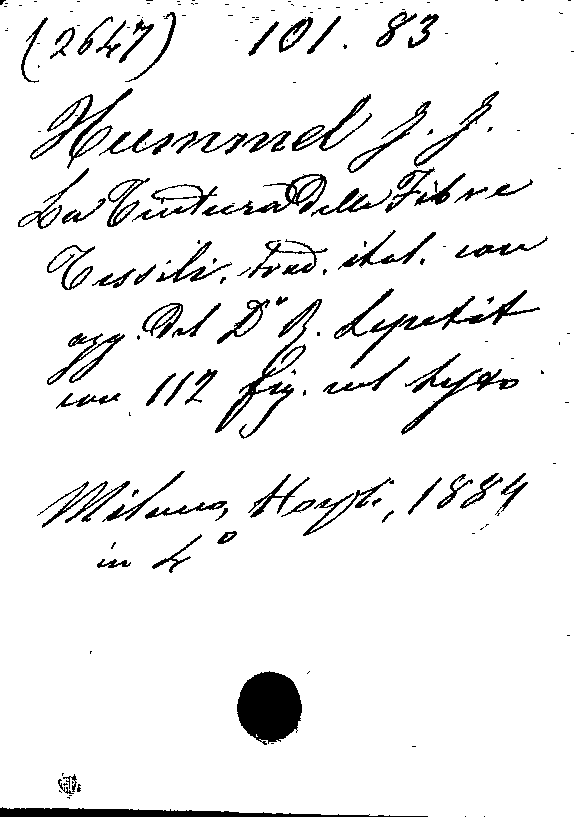 (2647) 101. 83
Hummel J. J.
La Tintura delle Fibre
Tessili. trad. ital. con
agg. del Dr R. Lepetit
con 112 fig. nel testo
Milano, Hoepli, 1884
in 4º